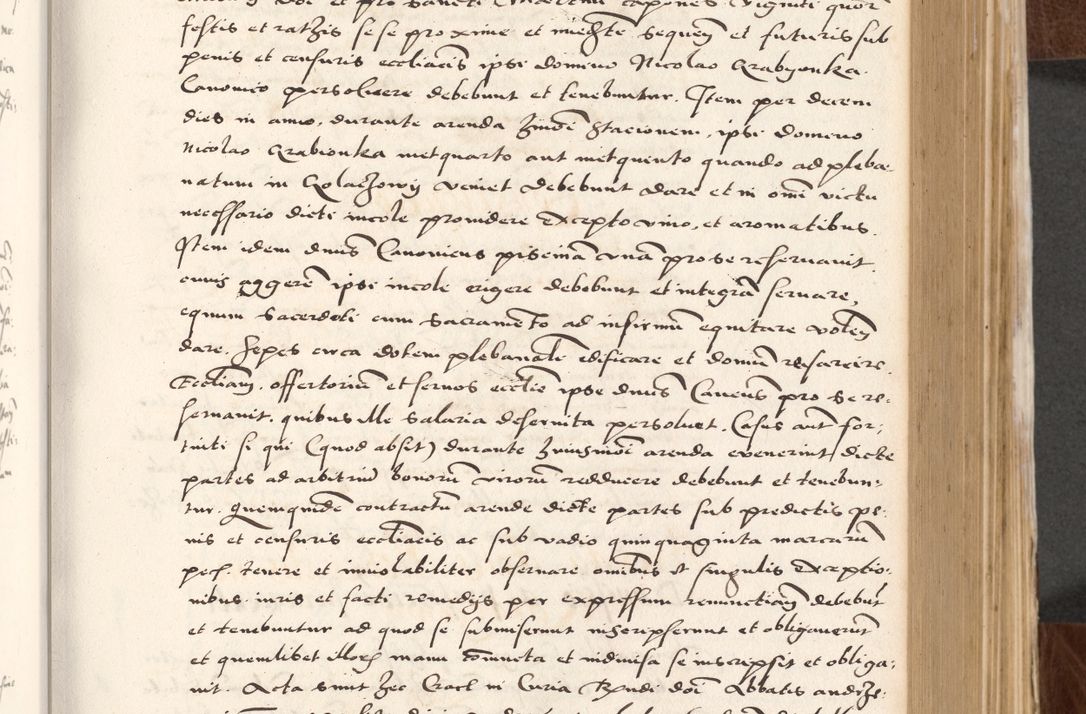 festis et rathis sese proxime et imediate sequen et futuris sub
penis et censuris eccliacis ipsi domino Nicolao Grabyonka
Canonico persoluere debebunt et tenebuntur. Item per decem
dies in anno, durante arenda stacionem, ipsi domino
Nicolao Grabionka metquarto aut metquinto quando ad pleba-
natum in veniet debebunt dare, et in omi victu
necessario dicti incole prouidere excepto vino, et aromatibus.
Item idem dnus Canonicus piscina vna pro se reseruauit.
cuius aggere ipsi incole erigere debebunt et integra seruare,
equum sacerdoti cum sacramento ad infirmu equitare volen
dare. Sepes circa dotem plebanale edificare et domum resarcire.
Eccliam. offertoriu et seruos ecclie ipse dnus Cancus pro se re-
seruauit. quibus ille salaria deseruita persoluet. Casus aut for-
tuiti si qui (quod absit) durante huiusmoi arenda euenerint, dicte
partes ad arbitriu bonoru viroru redducere debebunt et tenebun-
tur. Quemquide contractu arende dicte partes sub predictis pe-
nis et censuris eccliacis ac sub vadio quinquaginta marcaru
pec. tenere et inuiolabiliter obseruare omibus et singulis exceptio-
nibus iuris et facti remedijs per expressum renunctiam debebut
et tenebuntur ad quod se submiserunt inscripserunt et obligauerut
et quemlibet illor manu coniuncta et indiuisa se inscripsit et obliga-
uit. Acta sunt hec Crac in Curia Rndi doi Abbatis